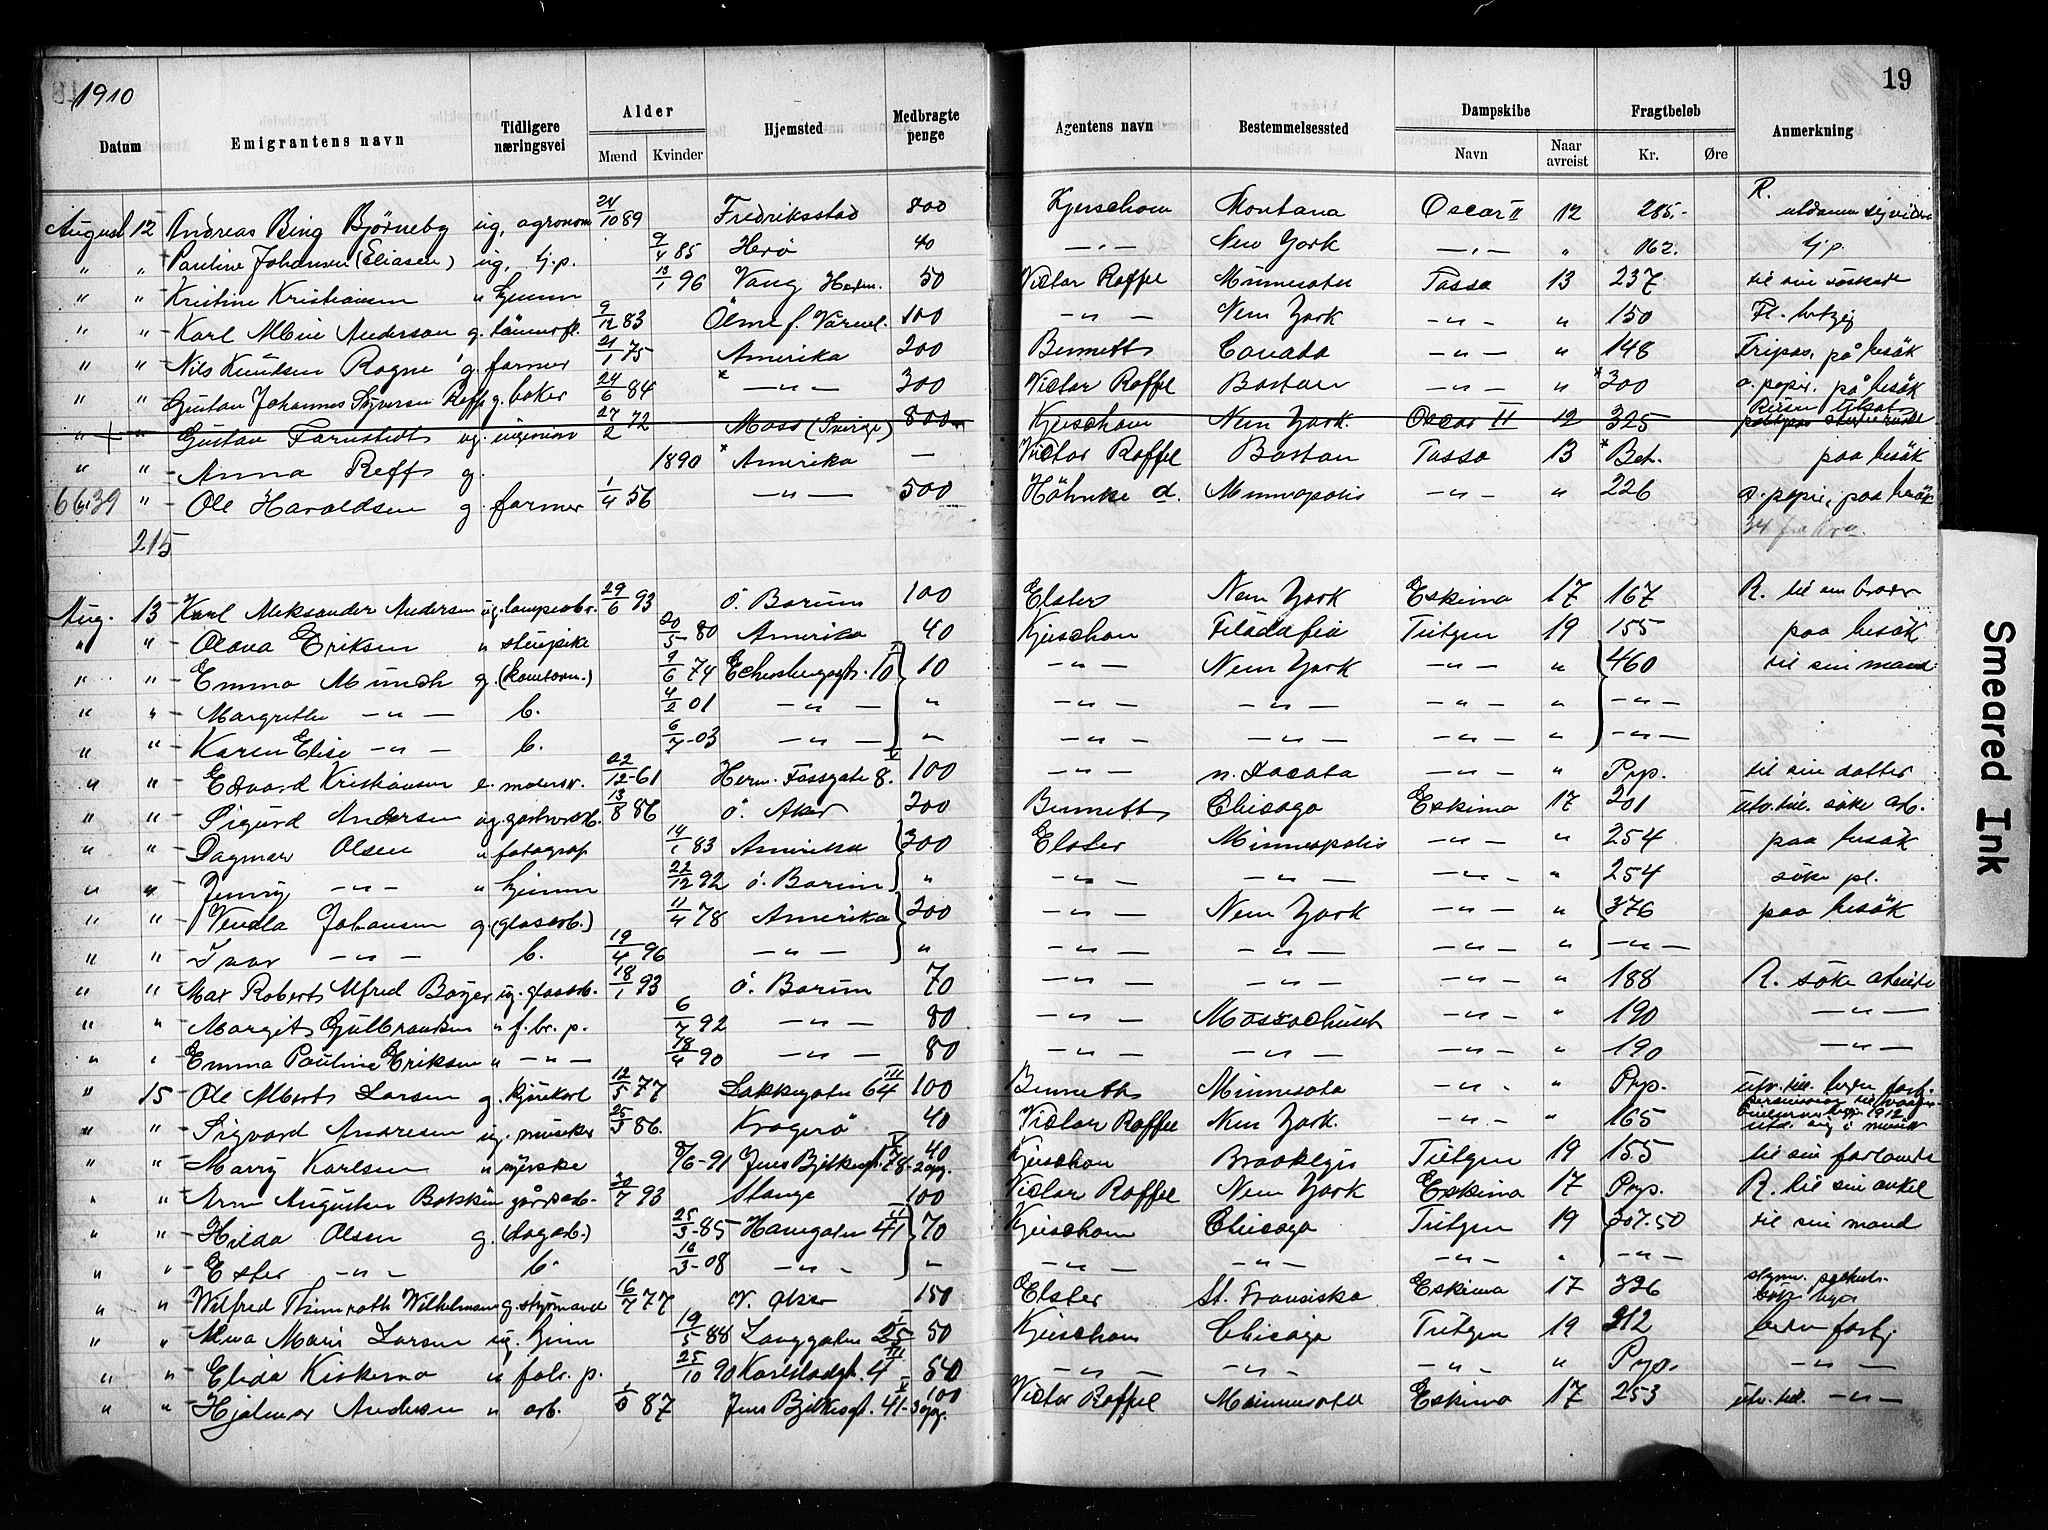 1910
19
Datum | Emigrantens navn | Tidligere næringsvei | Alder Mænd Kvinder | Hjemsted | Medbragte penge | Agentens navn | Bestemmelsessted | Dampskibe Navn Naar avreist | Fragtbeløb Kr. Øre | Anmerkning
August 12 Andreas Bing Bjørneby ug. agronom 24/10 89 Fredriksstad 800 Kjerschow Montana Oscar II 12 285.- R.
" " Pauline Johansen (Eliasen) ug. tj.p. 9/4 85 Herø 40 —"— New York —"— " 162. tj.p.
" " Kristine Kristiansen " hjemm 13/1 96 Vang Hedm. 50 Victor Roffel Minnesota Tasso 13 237 til sin söskende
" " Karl Albin Anderson g. 9/12 83 Ölme f. Värml. 100 —"— New York —"— " 150
" " Nils Knudsen Rogne g. farmer 21/1 75 Amerika 200 Bennett Canada —"— " 148 Tripas. på besök
" " Gustav Johannes Syversen Reff g. baker 24/6 84 * —"— 300 Victor Roffel Boston —"— " * 300 a. papir. på besök
" " Gustav Farnstedt ug. ingeniør 27/2 72 Moss (Sverige) 800 Kjerschow New York. Oscar II 12 325
" " Anna Reff g. 1890 * Amerika — Victor Roffel Boston Tasso 13 * Bet. paa besök
6639 " Ole Haraldsen g. farmer 1/4 56 —"— 500 Höhnke d. Minneapolis —"— " 226 a. papir, paa besök
215 34 fra Kra
Aug. 13 Karl Aleksander Andersen ug. lampearb. 29/6 93 ö. Bærum 100 Elster New York Eskimo 17 167 R. til sin broder
" " Olava Eriksen " stuepike 20/5 80 Amerika 40 Kjerschow Filadelfia Tietgen 19 155 paa besök
" " Emma Münch g. (kontorm.) 9/6 74 Eckersbergsgt. 10 10 —"— New York —"— " 460 til sin mand
" " Margrethe —"— b. 4/2 01 —"— " —"— —"— —"— " —"—
" " Karen Elise —"— b. 6/7 03 —"— " —"— —"— —"— " —"—
" " Edvard Kristiansen e. malersv. 22/12 61 Herm. Fossgate 8. 100 —"— n. Dacota —"— " Pryp. til sin datter
" " Sigurd Andersen ug. gartnerarb. 13/8 86 ö. Aker 200 Bennett Chicago Eskimo 17 201 utv. till. söke arb.
" " Dagmar Olsen " fotograf 14/1 83 Amerika 300 Elster Minneapolis —"— " 254 paa besök
" " Jenny —"— " hjemm 22/12 92 ö. Bærum " —"— —"— —"— " 254 söke pl.
" " Vendla Johansen g. (glasarb.) 11/4 78 Amerika 200 —"— New York —"— " 376 paa besök
" " Ivar —"— b. 19/4 96 —"— " —"— —"— —"— " —"—
" " Max Robert Alfred Bayer ug. glasarb. 18/1 93 ö. Bærum 70 —"— —"— —"— " 188 R. söke arbeide
" " Margit Gulbrandsen " f.br.p. 6/7 92 —"— 80 —"— Massachuset —"— " 190 —"—
" " Emma Pauline Eriksen " —"— 18/4 90 —"— 80 —"— —"— —"— " 190 —"—
" 15 Ole Albert Larsen g. kjörekarl 12/5 77 Lakkegaten 64 III 100 Bennett Minnesota —"— " Pryp. utv. till. bedre fortj.
" " Sigvard Andresen ug. musiker 25/3 86. Kragerø 40 Victor Roffel New York. —"— " 165 utd. sig i musik
" " Marry Karlsen " syerske 8/6 91 Jens Bjelkesgt. 78 V 40 Kjerschow Brooklyn Tietgen 19 155 til sin forlovede
" " Arne Augustin Bakken gårdsarb. 30/7 93 Stange 100 Victor Roffel New York Eskimo 17 Pryp. R. til sin onkel
" " Hilda Olsen g. (dagarb.) 25/3 85 Hannegaten 41 II 70 Kjerschow Chicago Tietgen 19 307.50 til sin mand
" " Ester —"— b. 16/3 08 —"— " —"— —"— —"— " —"—
" " Wilfred Wilhelmsen g. styrmand 16/7 77 V. Aker 150 Elster St. Fransisko Eskimo 17 326
" " Alva Marie Larsen ug. hjem 19/5 88 Langgaten 25 I 50 Kjerschow Chicago Tietgen 19 212 bedre fortj
" " Elida Kirkemo " fabr. p. 25/10 90 Karlstadgt. 4 III 50 —"— —"— —"— " Pryp. —"—
" " Hjalmar Andersen " arb. 87 Jens Bjelkesgt. 41 V 100 Victor Roffel Minnesota Eskimo 17 253 utv. till. —"—
Smeared Ink